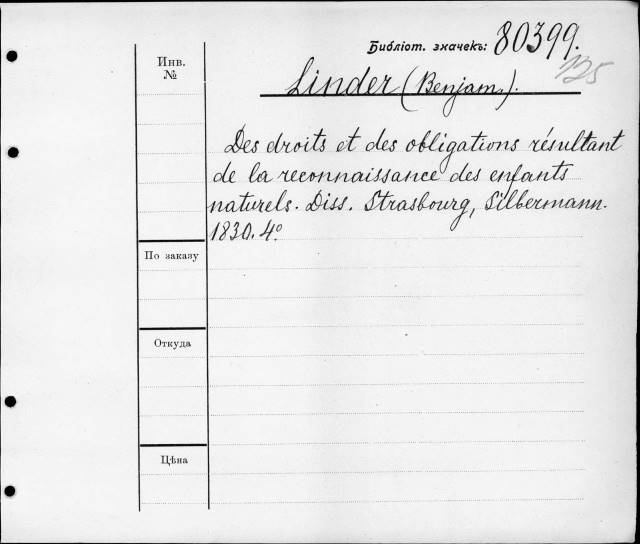 Библіот. значекъ: 80399.
125
Инв.
№
Linder (Benjam.).
Des droits et des obligations résultant
de la reconnaissance des enfants
naturels. Diss. Strasbourg, Silbermann.
1830. 4º
По заказу
Откуда
Цѣна